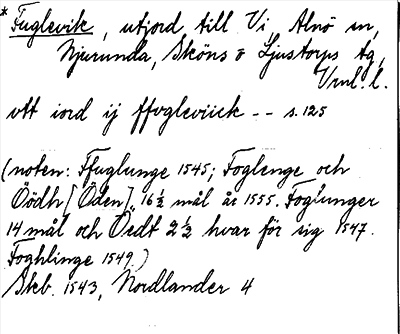 * Fuglevik, utjord till Vi, Alnö sn,
Njurunda, Sköns o Ljustorps tg,
Vrml. l.
vtt iord ij ffvgleviick -- s. 125
(noten: Ffuglunge 1545; Foglenge och
Öödh [Öden], 16½ mål år 1555. Foglunger
14 mål och Öedt 2½ hvar för sig 1547.
Foghlinge 1549.)
Skb. 1543, Nordlander 4